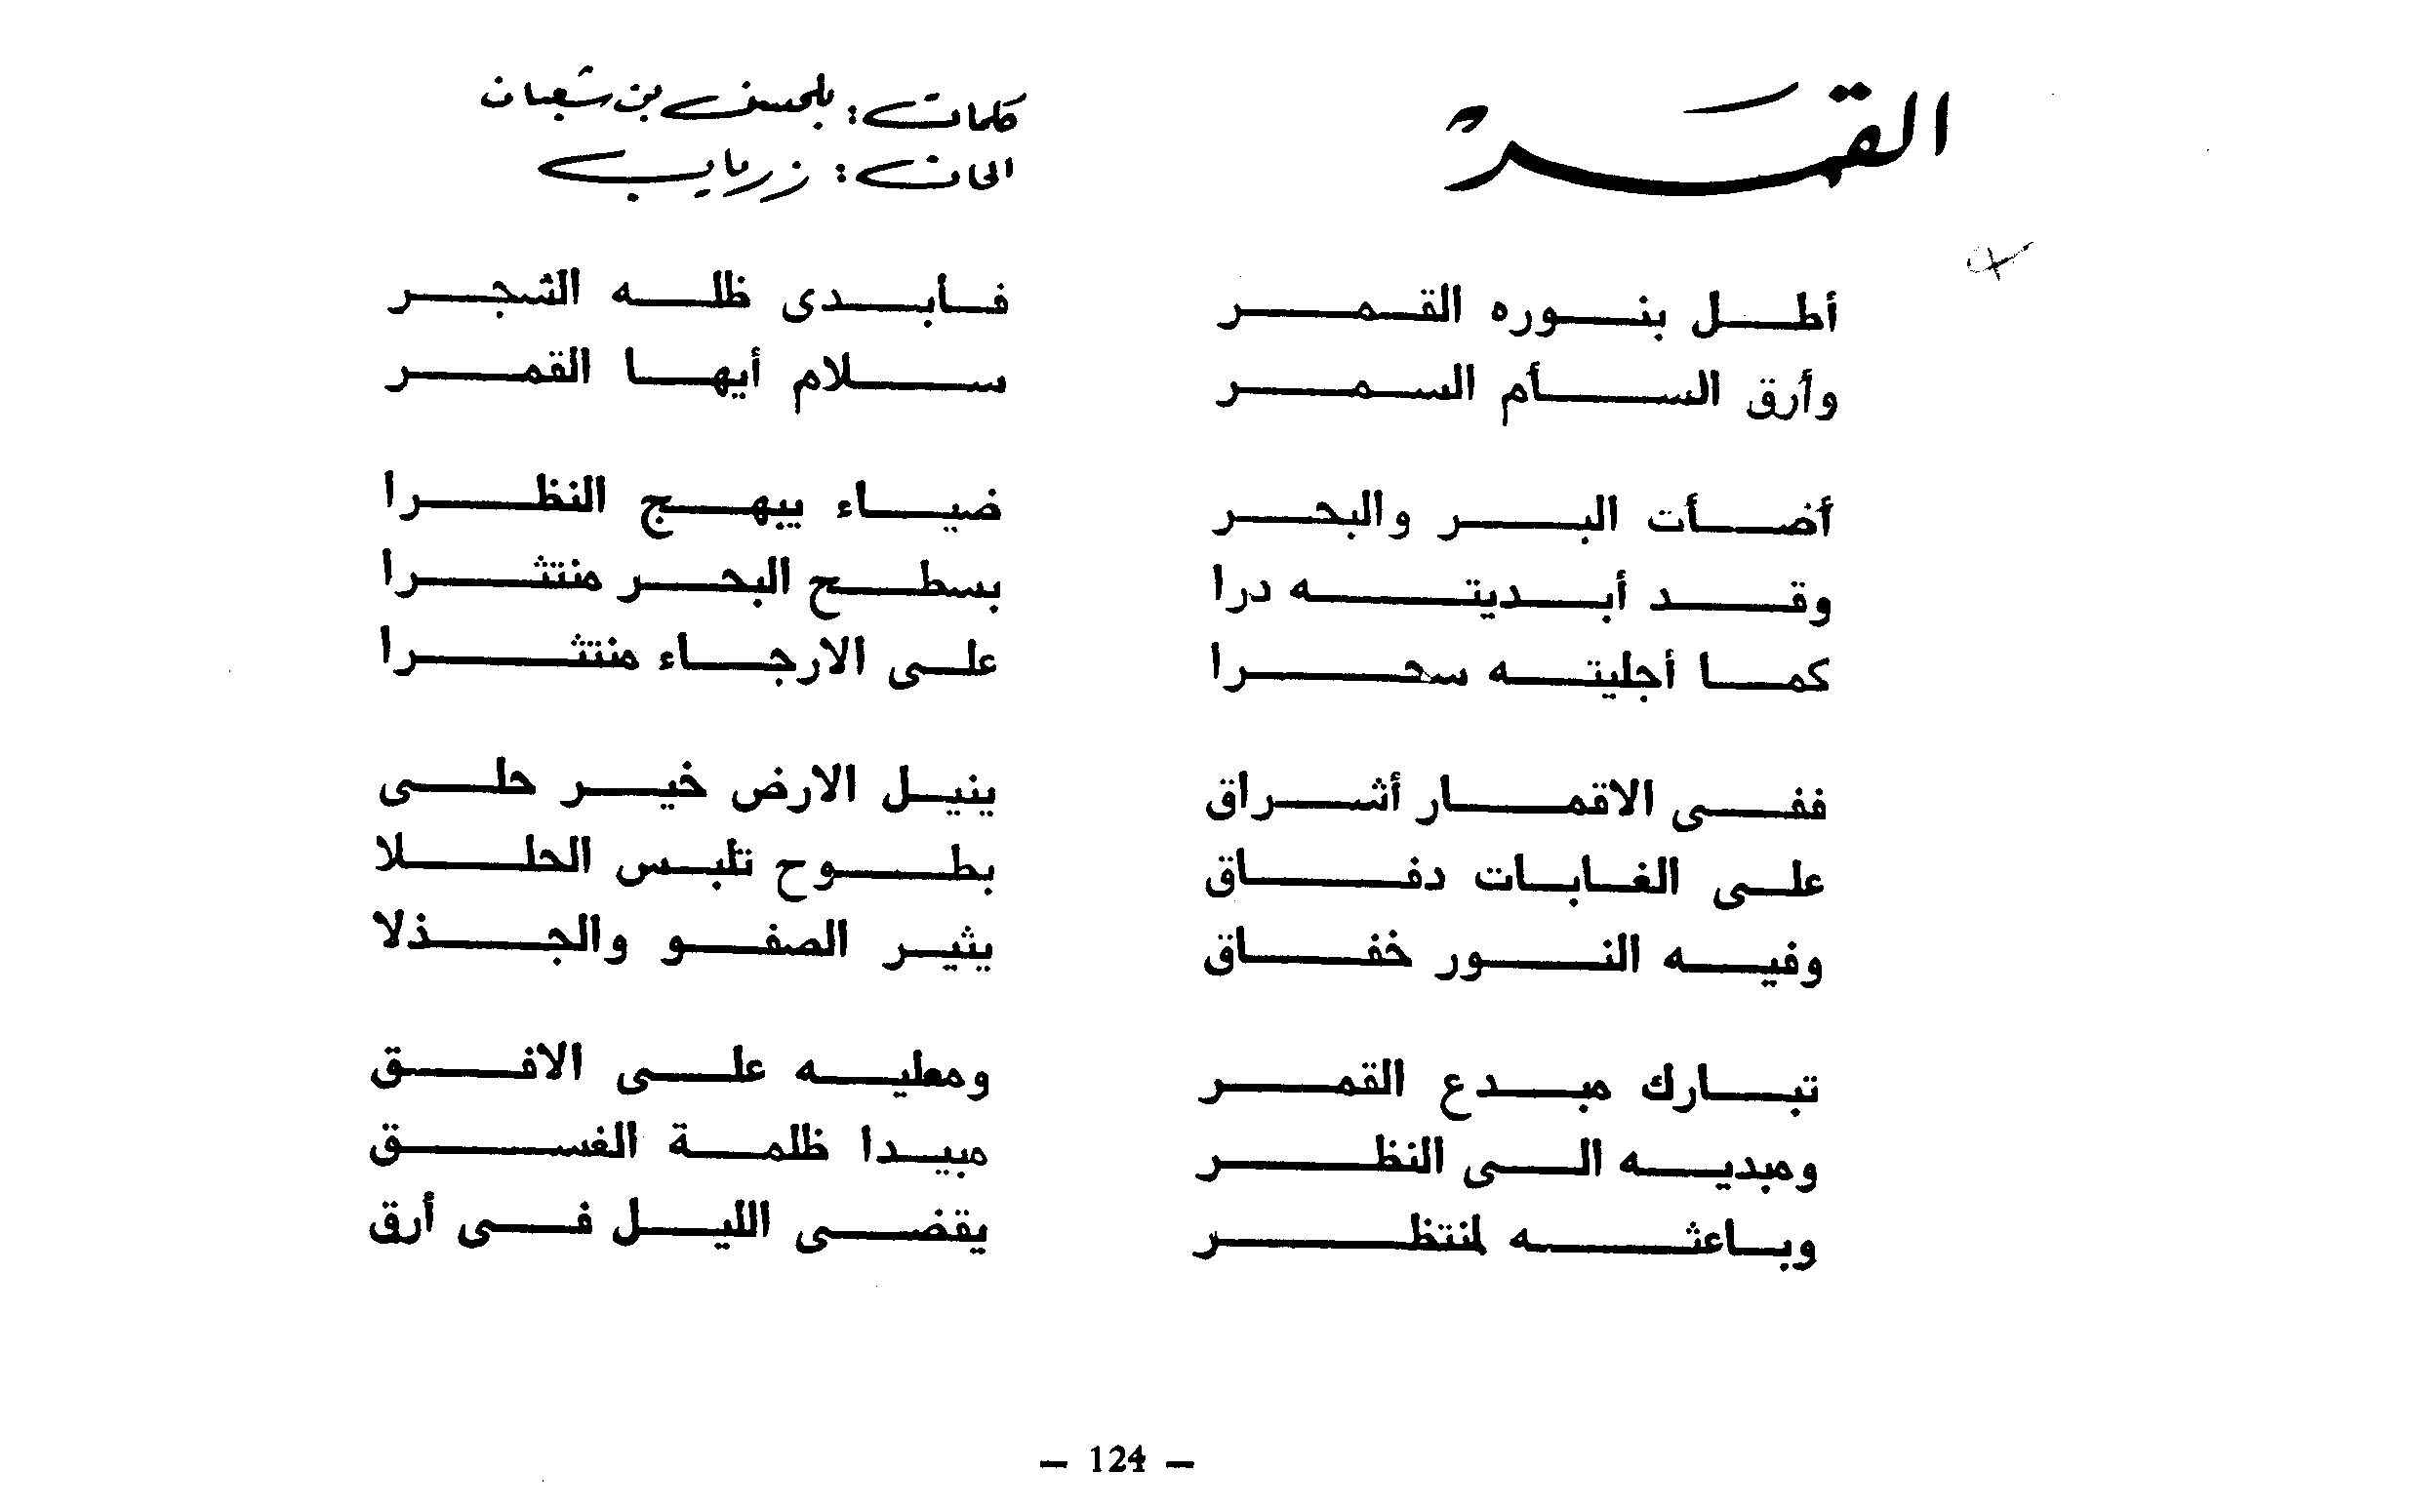 القمر
كلمات : بلحسن بن شعبان
الحان : زرياب
أطل بنوره القمر فأبدى ظله الشجر
وأرق السأم السمر سلام أيها القمر
أضأت البر والبحر ضياء يبهج النظرا
وقد أبديته درا بسطح البحر منتثرا
كما أجليته سحرا على الارجاء منتثرا
ففى الاقمار أشراق ينيل الارض خير حلى
على الغابات دفاق بطوح تلبس الحللا
وفيه النور خفاق يثير الصفو والجذلا
تبارك مبدع القمر ومعليه على الافق
ومبديه الى النظر مبيدا ظلمة الغسق
وباعثه لمنتظر يقضى الليل فى أرق
— 124 —